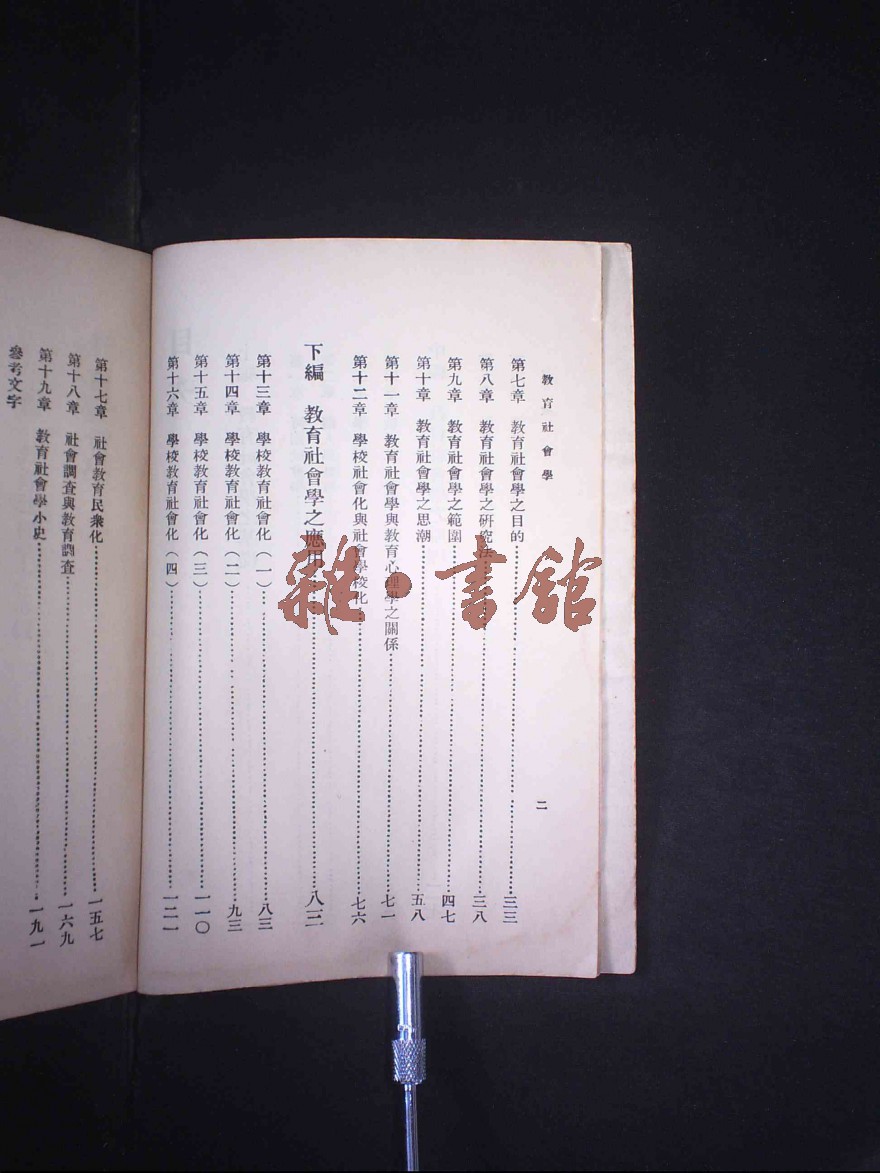 教育社會學
二
第七章 教育社會學之目的……三三
第八章 教育社會學之研究法……三八
第九章 教育社會學之範圍……四七
第十章 教育社會學之思潮……五八
第十一章 教育社會學與教育心理學之關係……七一
第十二章 學校社會化與社會學校化……七六
下編 教育社會學之應用……八三
第十三章 學校教育社會化（一）……八三
第十四章 學校教育社會化（二）……九三
第十五章 學校教育社會化（三）……一一〇
第十六章 學校教育社會化（四）……一二一
第十七章 社會教育民衆化……一五七
第十八章 社會調查與教育調查……一六九
第十九章 教育社會學小史……一九一
參考文字
雜·書館